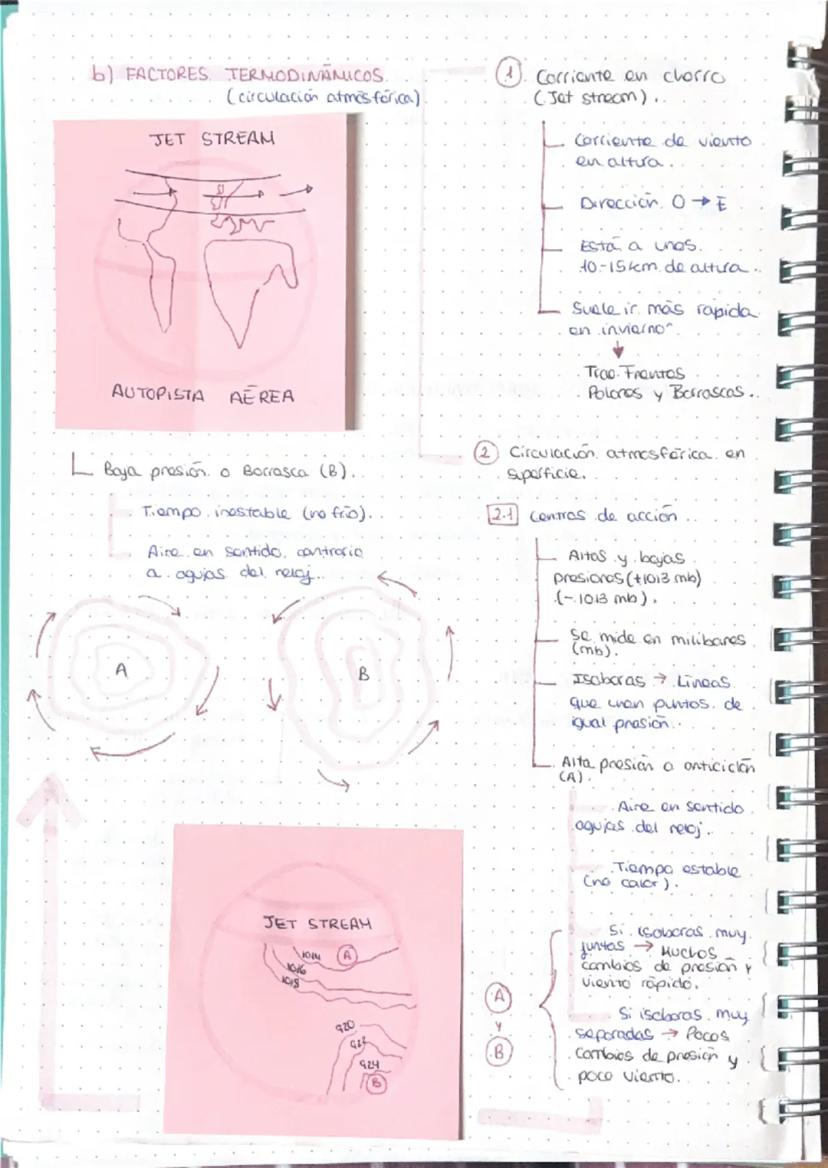 b) FACTORES TERMODINÁMICOS
(circulación atmosférica)
JET STREAM
AUTOPISTA AÉREA
1 Corriente en chorro
(Jet stream).
Corriente de viento
en altura.
Dirección O → E
Está a unos
10-15 km de altura.
Suele ir más rapida
en invierno
Trae Frentes
Polares y Borrascas.
2 Circulación atmosférica en
superficie.
2.1 Centros de acción
Altas y bajas
presiones (+1013 mb)
(-1013 mb).
Se mide en milibares
(mb).
Isobaras → Líneas
que unen puntos de
igual presión.
Alta presión o anticiclón
(A)
Aire en sentido
agujas del reloj.
Tiempo estable
(no calor).
A y B
Si isobaras muy
juntas → Muchos
cambios de presión y
viento rápido.
Si isobaras muy
separadas → Pocos
cambios de presión y
poco viento.
Baja presión o Borrasca (B).
Tiempo inestable (no frío).
Aire en sentido contrario
a agujas del reloj.
A
B
JET STREAM
1014
A
1016
1018
920
922
924
B